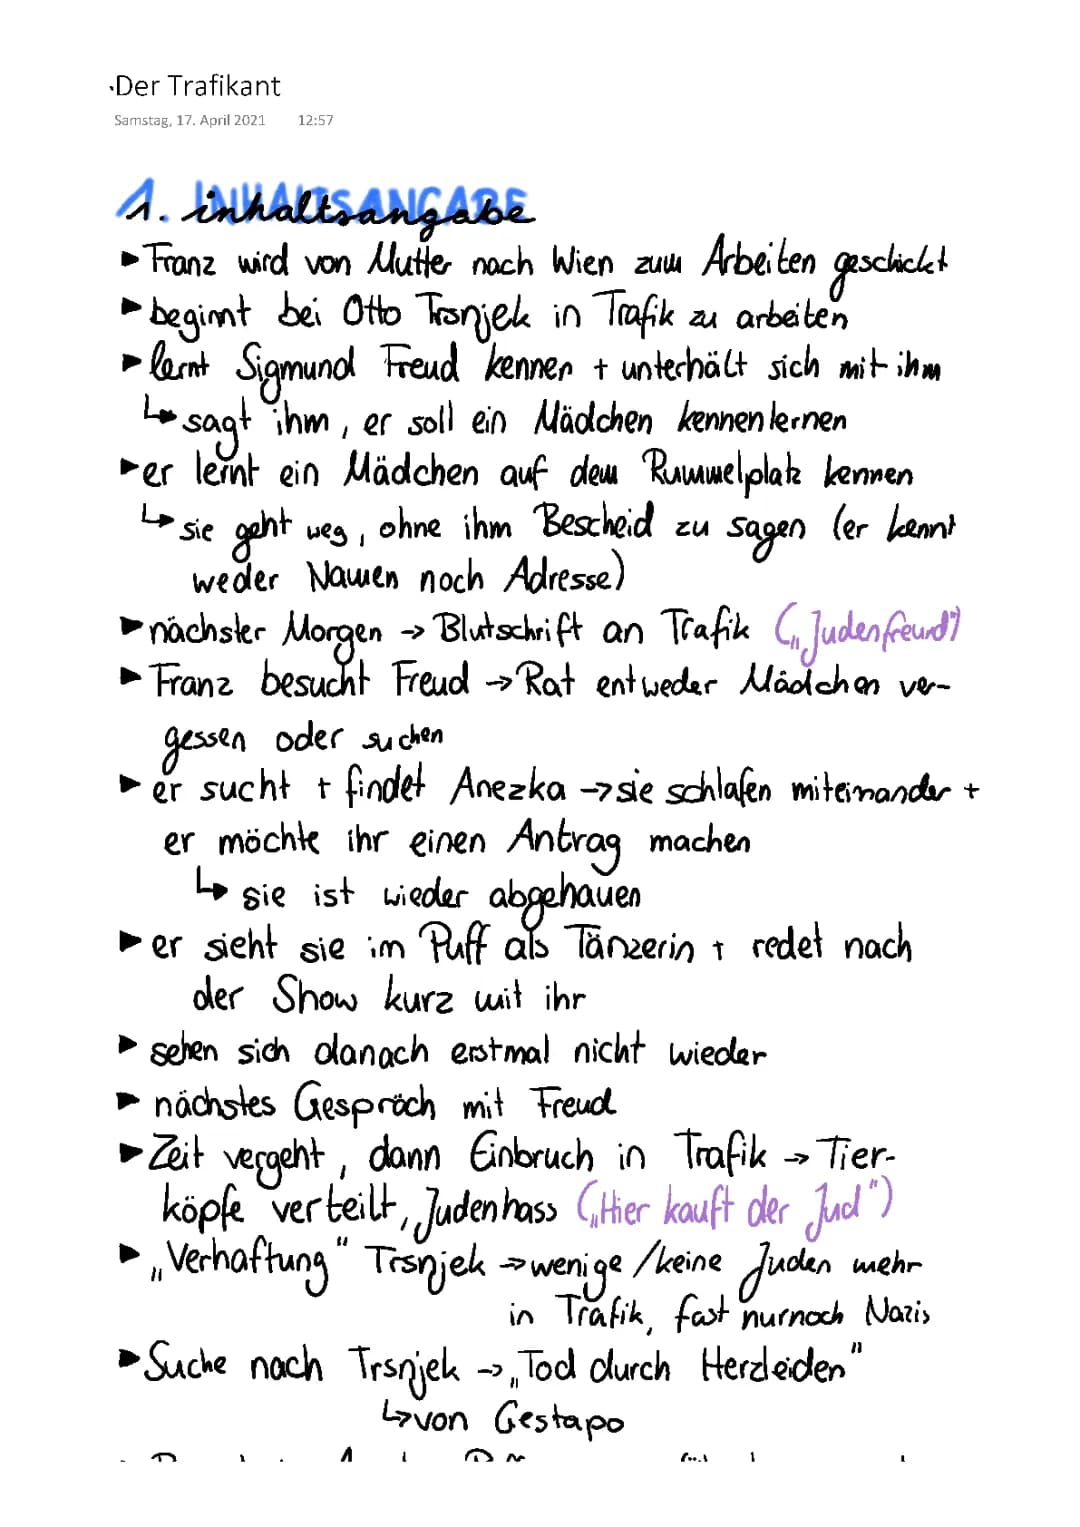 Der Trafikant
Samstag, 17. April 2021 12:57
1. INHALTSANGABE
inhaltsangabe
▸ Franz wird von Mutter nach Wien zum Arbeiten geschickt
▸ beginnt bei Otto Trsnjek in Trafik zu arbeiten
▸ lernt Sigmund Freud kennen + unterhält sich mit ihm
↳ sagt ihm, er soll ein Mädchen kennenlernen
▸ er lernt ein Mädchen auf dem Rummelplatz kennen
↳ sie geht weg, ohne ihm Bescheid zu sagen (er kennt
weder Namen noch Adresse)
▸ nächster Morgen → Blutschrift an Trafik („Judenfreund")
▸ Franz besucht Freud → Rat entweder Mädchen ver-
gessen oder suchen
▸ er sucht + findet Anezka → sie schlafen miteinander +
er möchte ihr einen Antrag machen
↳ sie ist wieder abgehauen
▸ er sieht sie im Puff als Tänzerin + redet nach
der Show kurz mit ihr
▸ sehen sich danach erstmal nicht wieder
▸ nächstes Gespräch mit Freud
▸ Zeit vergeht, dann Einbruch in Trafik → Tier-
köpfe verteilt, Judenhass („Hier kauft der Jud")
▸ „Verhaftung" Trsnjek → wenige/keine Juden mehr
in Trafik, fast nurnoch Nazis
▸ Suche nach Trsnjek → „Tod durch Herzleiden"
↳ von Gestapo